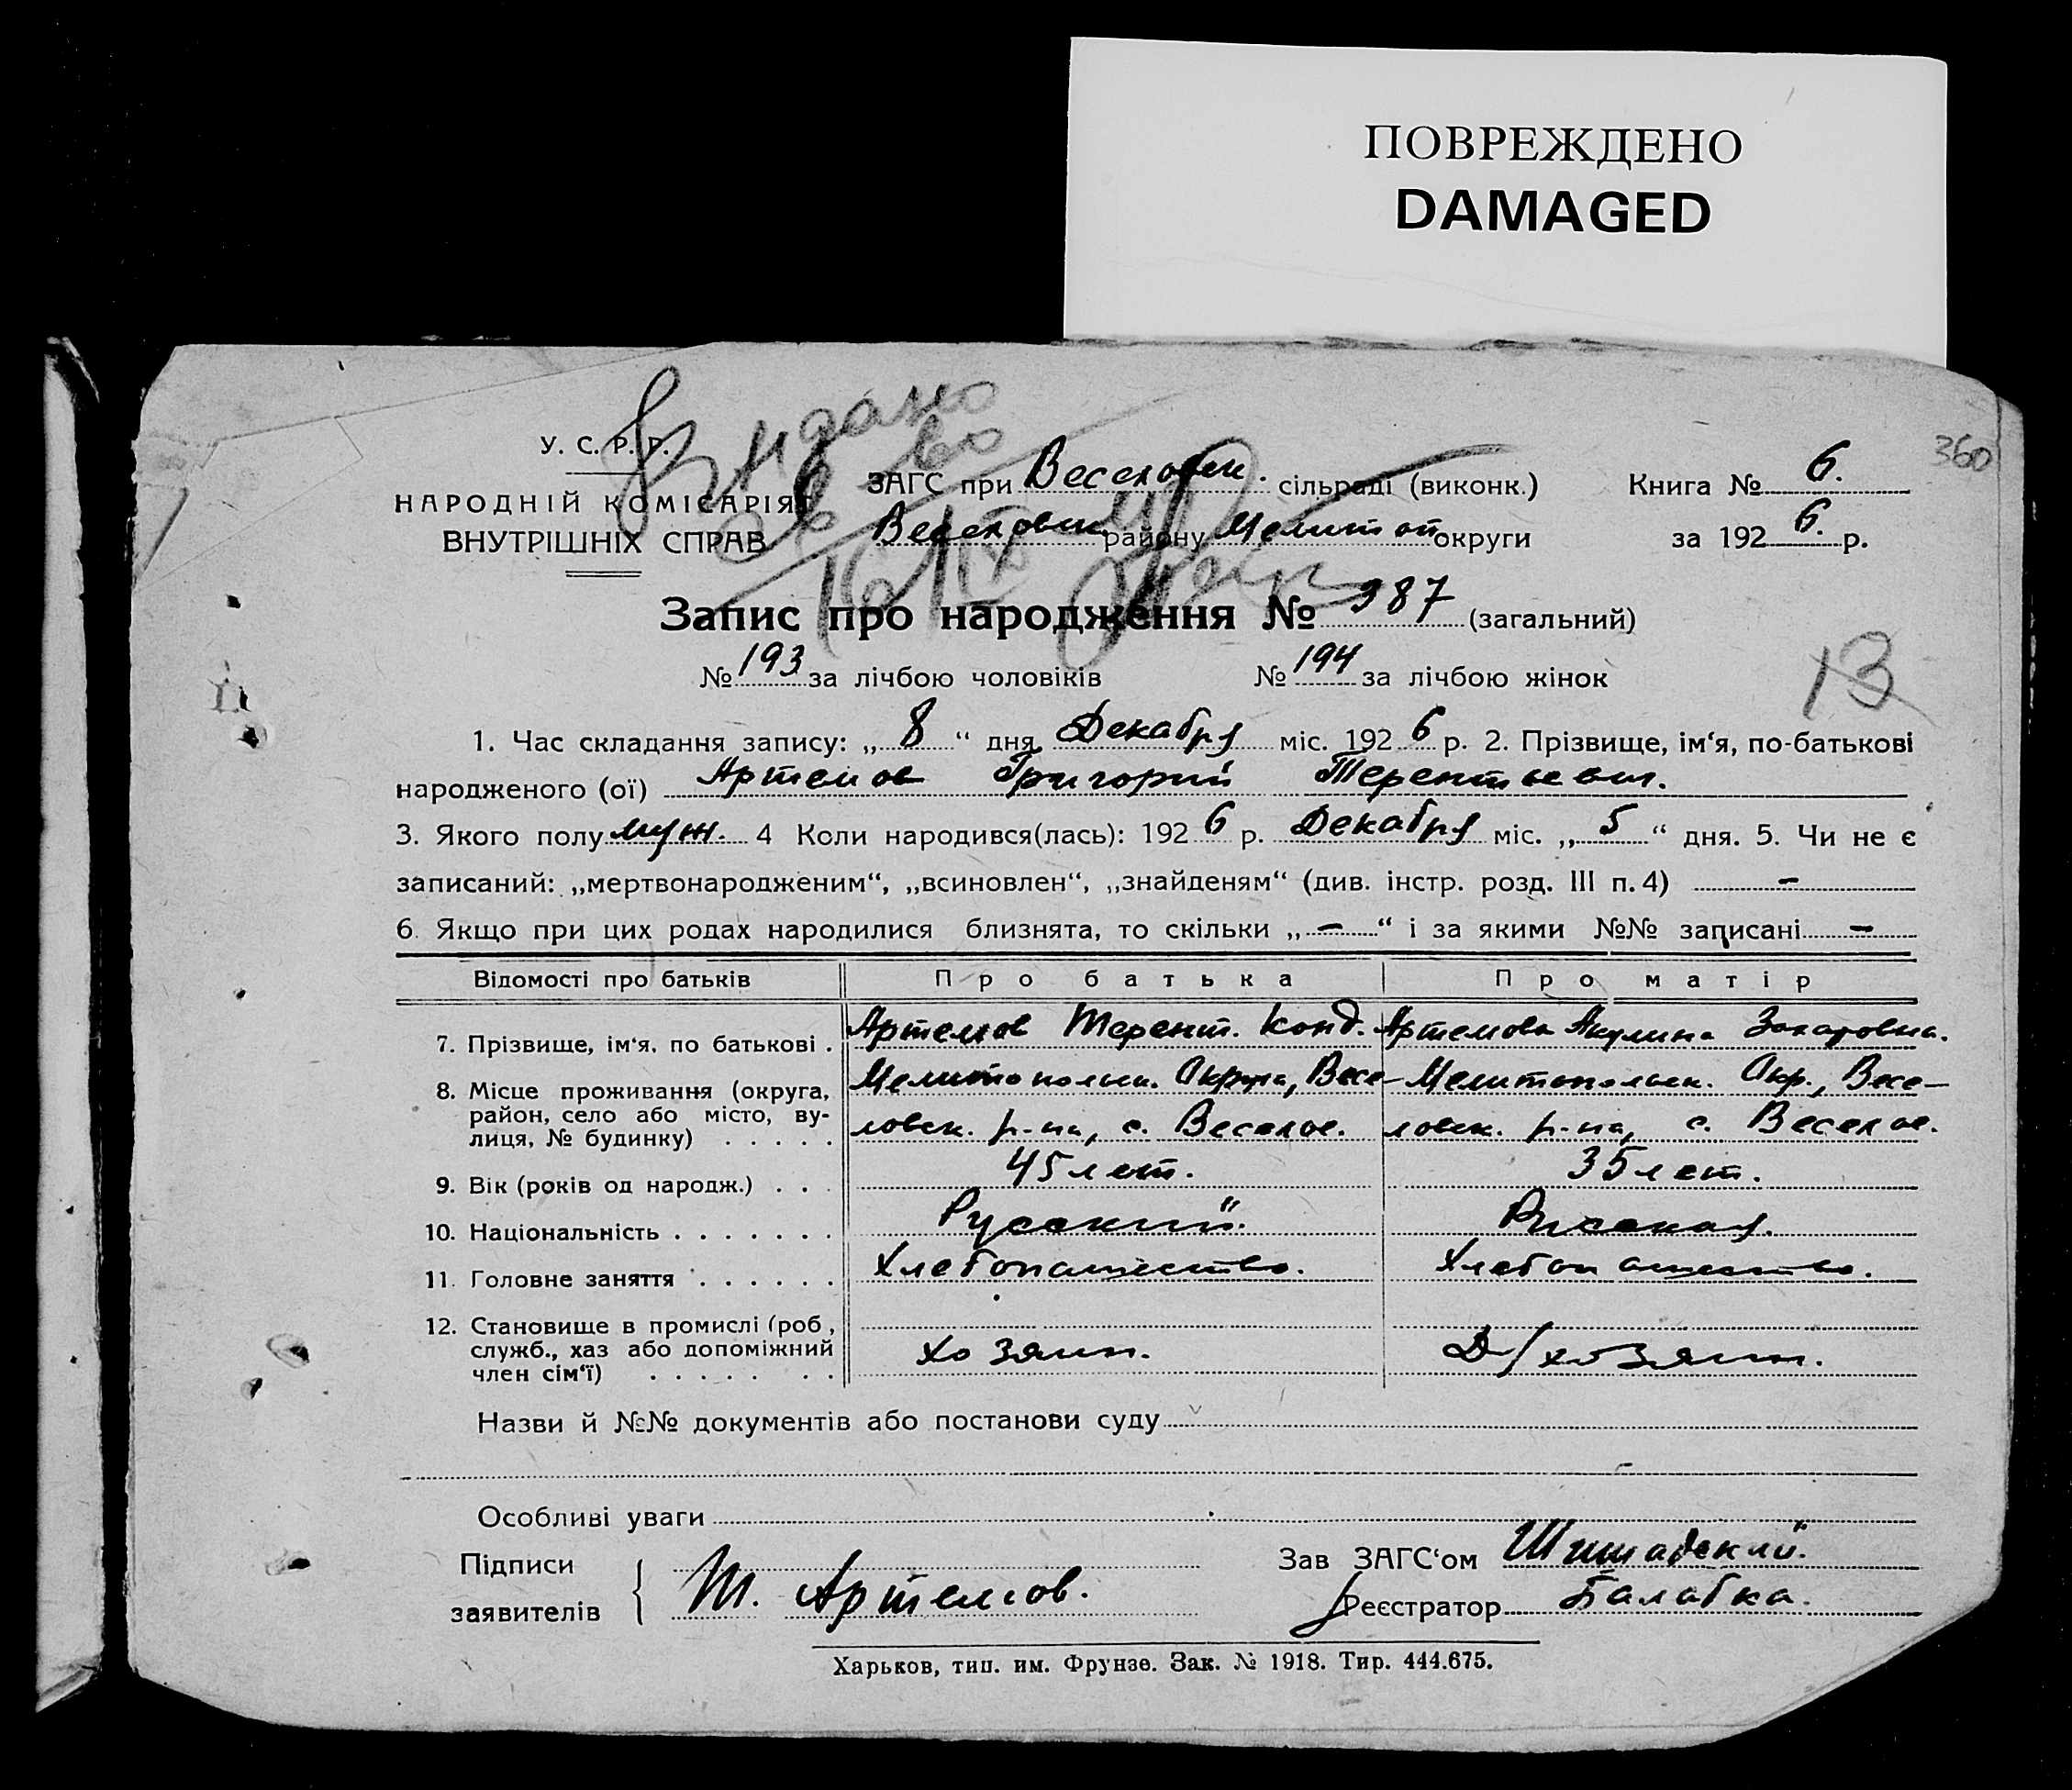 ПОВРЕЖДЕНО
DAMAGED
360
У. С. Р. Р.
НАРОДНІЙ КОМІСАРІЯТ
ВНУТРІШНІХ СПРАВ
ЗАГС при Веселовск. сільраді (виконк.)
Веселовск району Мелитоп округи
Книга № 6.
за 1926. р.
Запис про народження № 387 (загальний)
№ 193 за лічбою чоловіків № 194 за лічбою жінок
13
1. Час складання запису: „ 8 “ дня Декабря міс. 1926 р. 2. Прізвище, ім‘я, по-батькові
народженого (ої) Артемов Григорий Терентьевич.
3. Якого полу муж. 4 Коли народився(лась): 1926 р. Декабря міс. „ 5 “ дня. 5. Чи не є
записаний: „мертвонародженим“, „всиновлен“, „знайденям“ (див. інстр. розд. III п. 4) –
6. Якщо при цих родах народилися близнята, то скільки „ – “ і за якими №№ записані –
Відомості про батьків Про батька Про матір
7. Прізвище, ім‘я, по батькові . Артемов Терент. Конд. Артемова Акулина Захаровна.
8. Місце проживання (округа, район, село або місто, вулиця, № будинку) . . . . .
Мелитопольск. Округа, Весе-
ловск. р-на, с. Веселое.
Мелитопольск. Окр., Весе-
ловск. р-на, с. Веселое.
9. Вік (років од народж.) . . . 45 лет. 35 лет.
10. Національність . . . . . . . Русский. Русская.
11. Головне заняття . . . . . . Хлебопашество. Хлебопашество.
12. Становище в промислі (роб.,
служб., хаз або допоміжний
член сім‘ї) . . . . . . .
хозяин. Д/хозяин.
Назви й №№ документів або постанови суду
Особливі уваги
Підписи
заявителів
Т. Артемов.
Зав ЗАГС‘ом
Реєстратор Балабка.
Харьков, тип. им. Фрунзе. Зак. № 1918. Тир. 444.675.